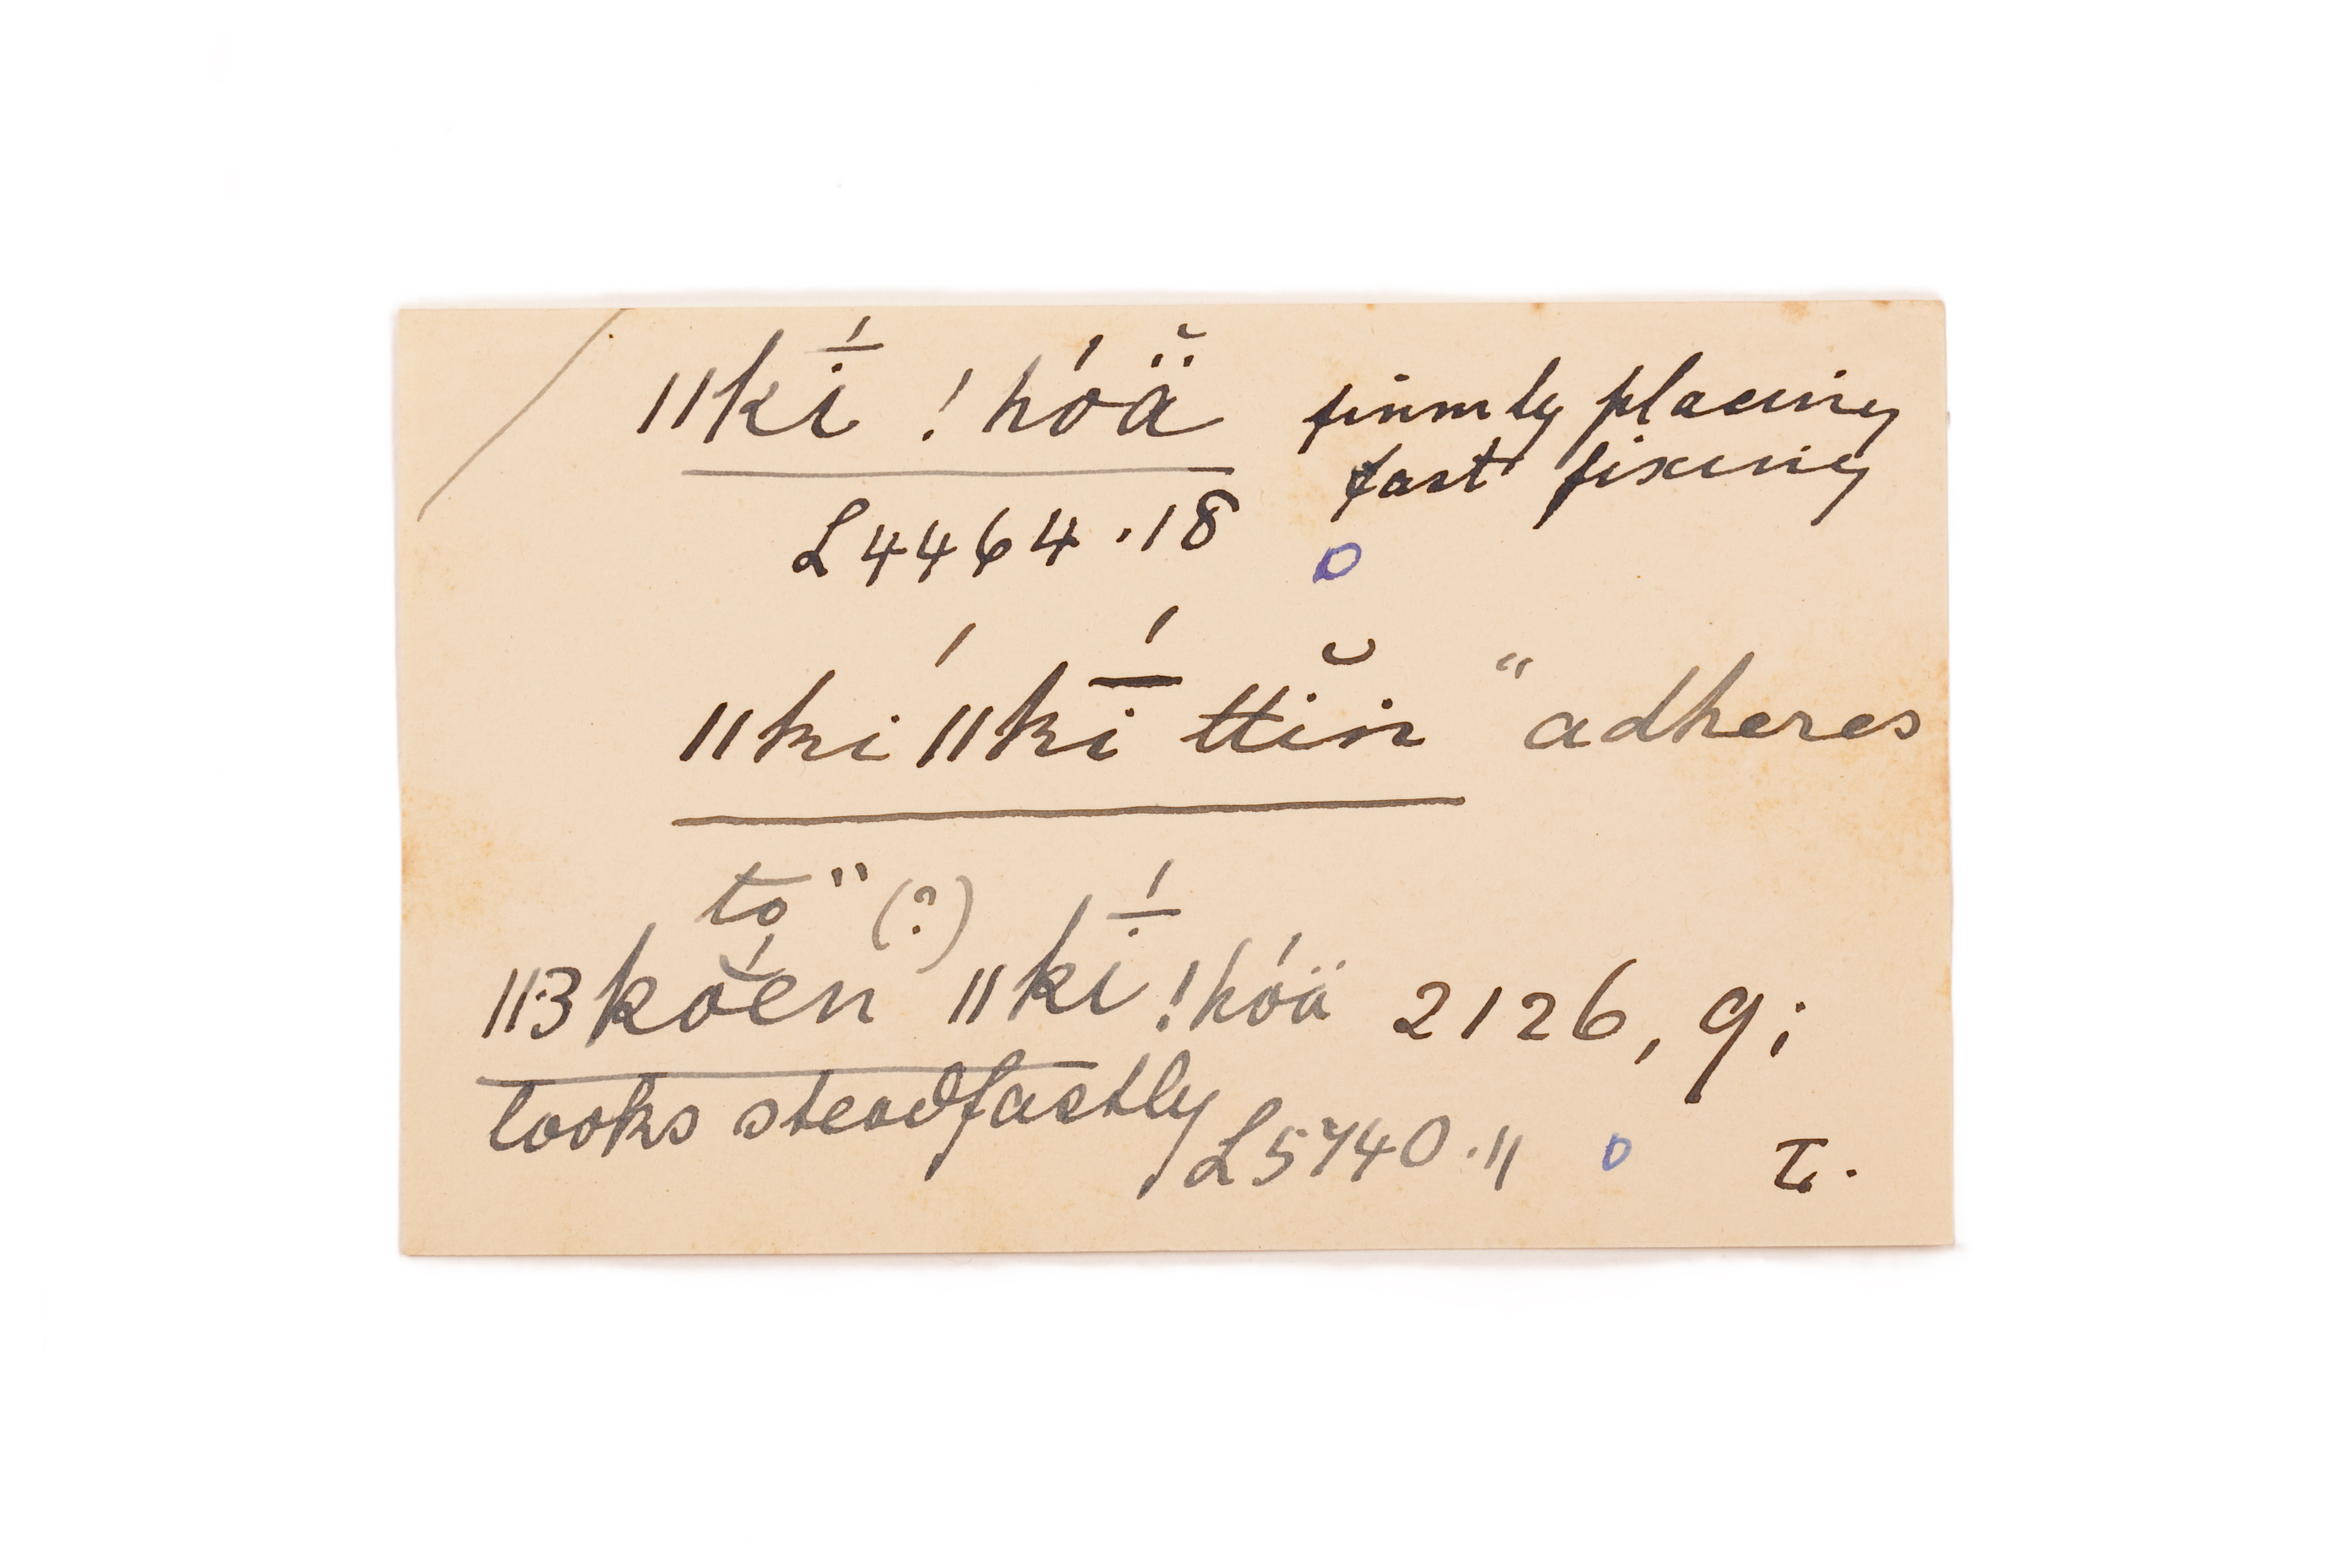 ǁkī́ !hóä̆ firmly placing
fast fixing
L4464.18
ǁkíǁkī́ ttĭn "adheres
to" (?)
ǁɜkŏ́en ǁkī́ !hóä 2126, 9;
looks steadfastly
L5740.11 τ.